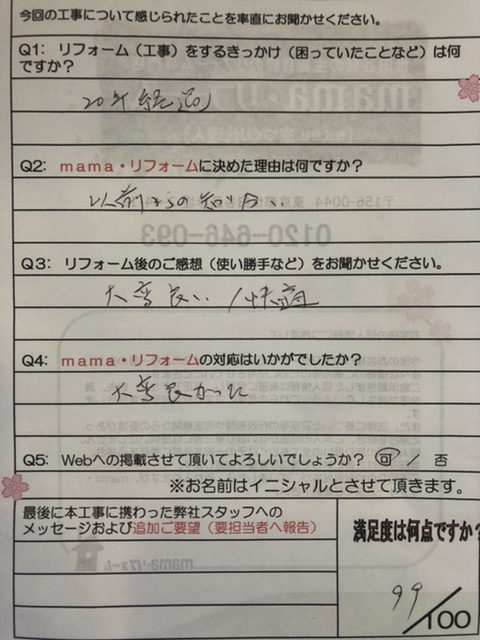 今回の工事について感じられたことを率直にお聞かせください。
Q1：リフォーム（工事）をするきっかけ（困っていたことなど）は何
ですか？
20年経過
Q2：mama・リフォームに決めた理由は何ですか？
以前からの知り合い
Q3：リフォーム後のご感想（使い勝手など）をお聞かせください。
大変良い、快適
Q4：mama・リフォームの対応はいかがでしたか？
大変良かった
Q5：Webへの掲載させて頂いてよろしいでしょうか？ 可 / 否
※お名前はイニシャルとさせて頂きます。
最後に本工事に携わった弊社スタッフへの
メッセージおよび追加ご要望（要担当者へ報告）
満足度は何点ですか？
99/100